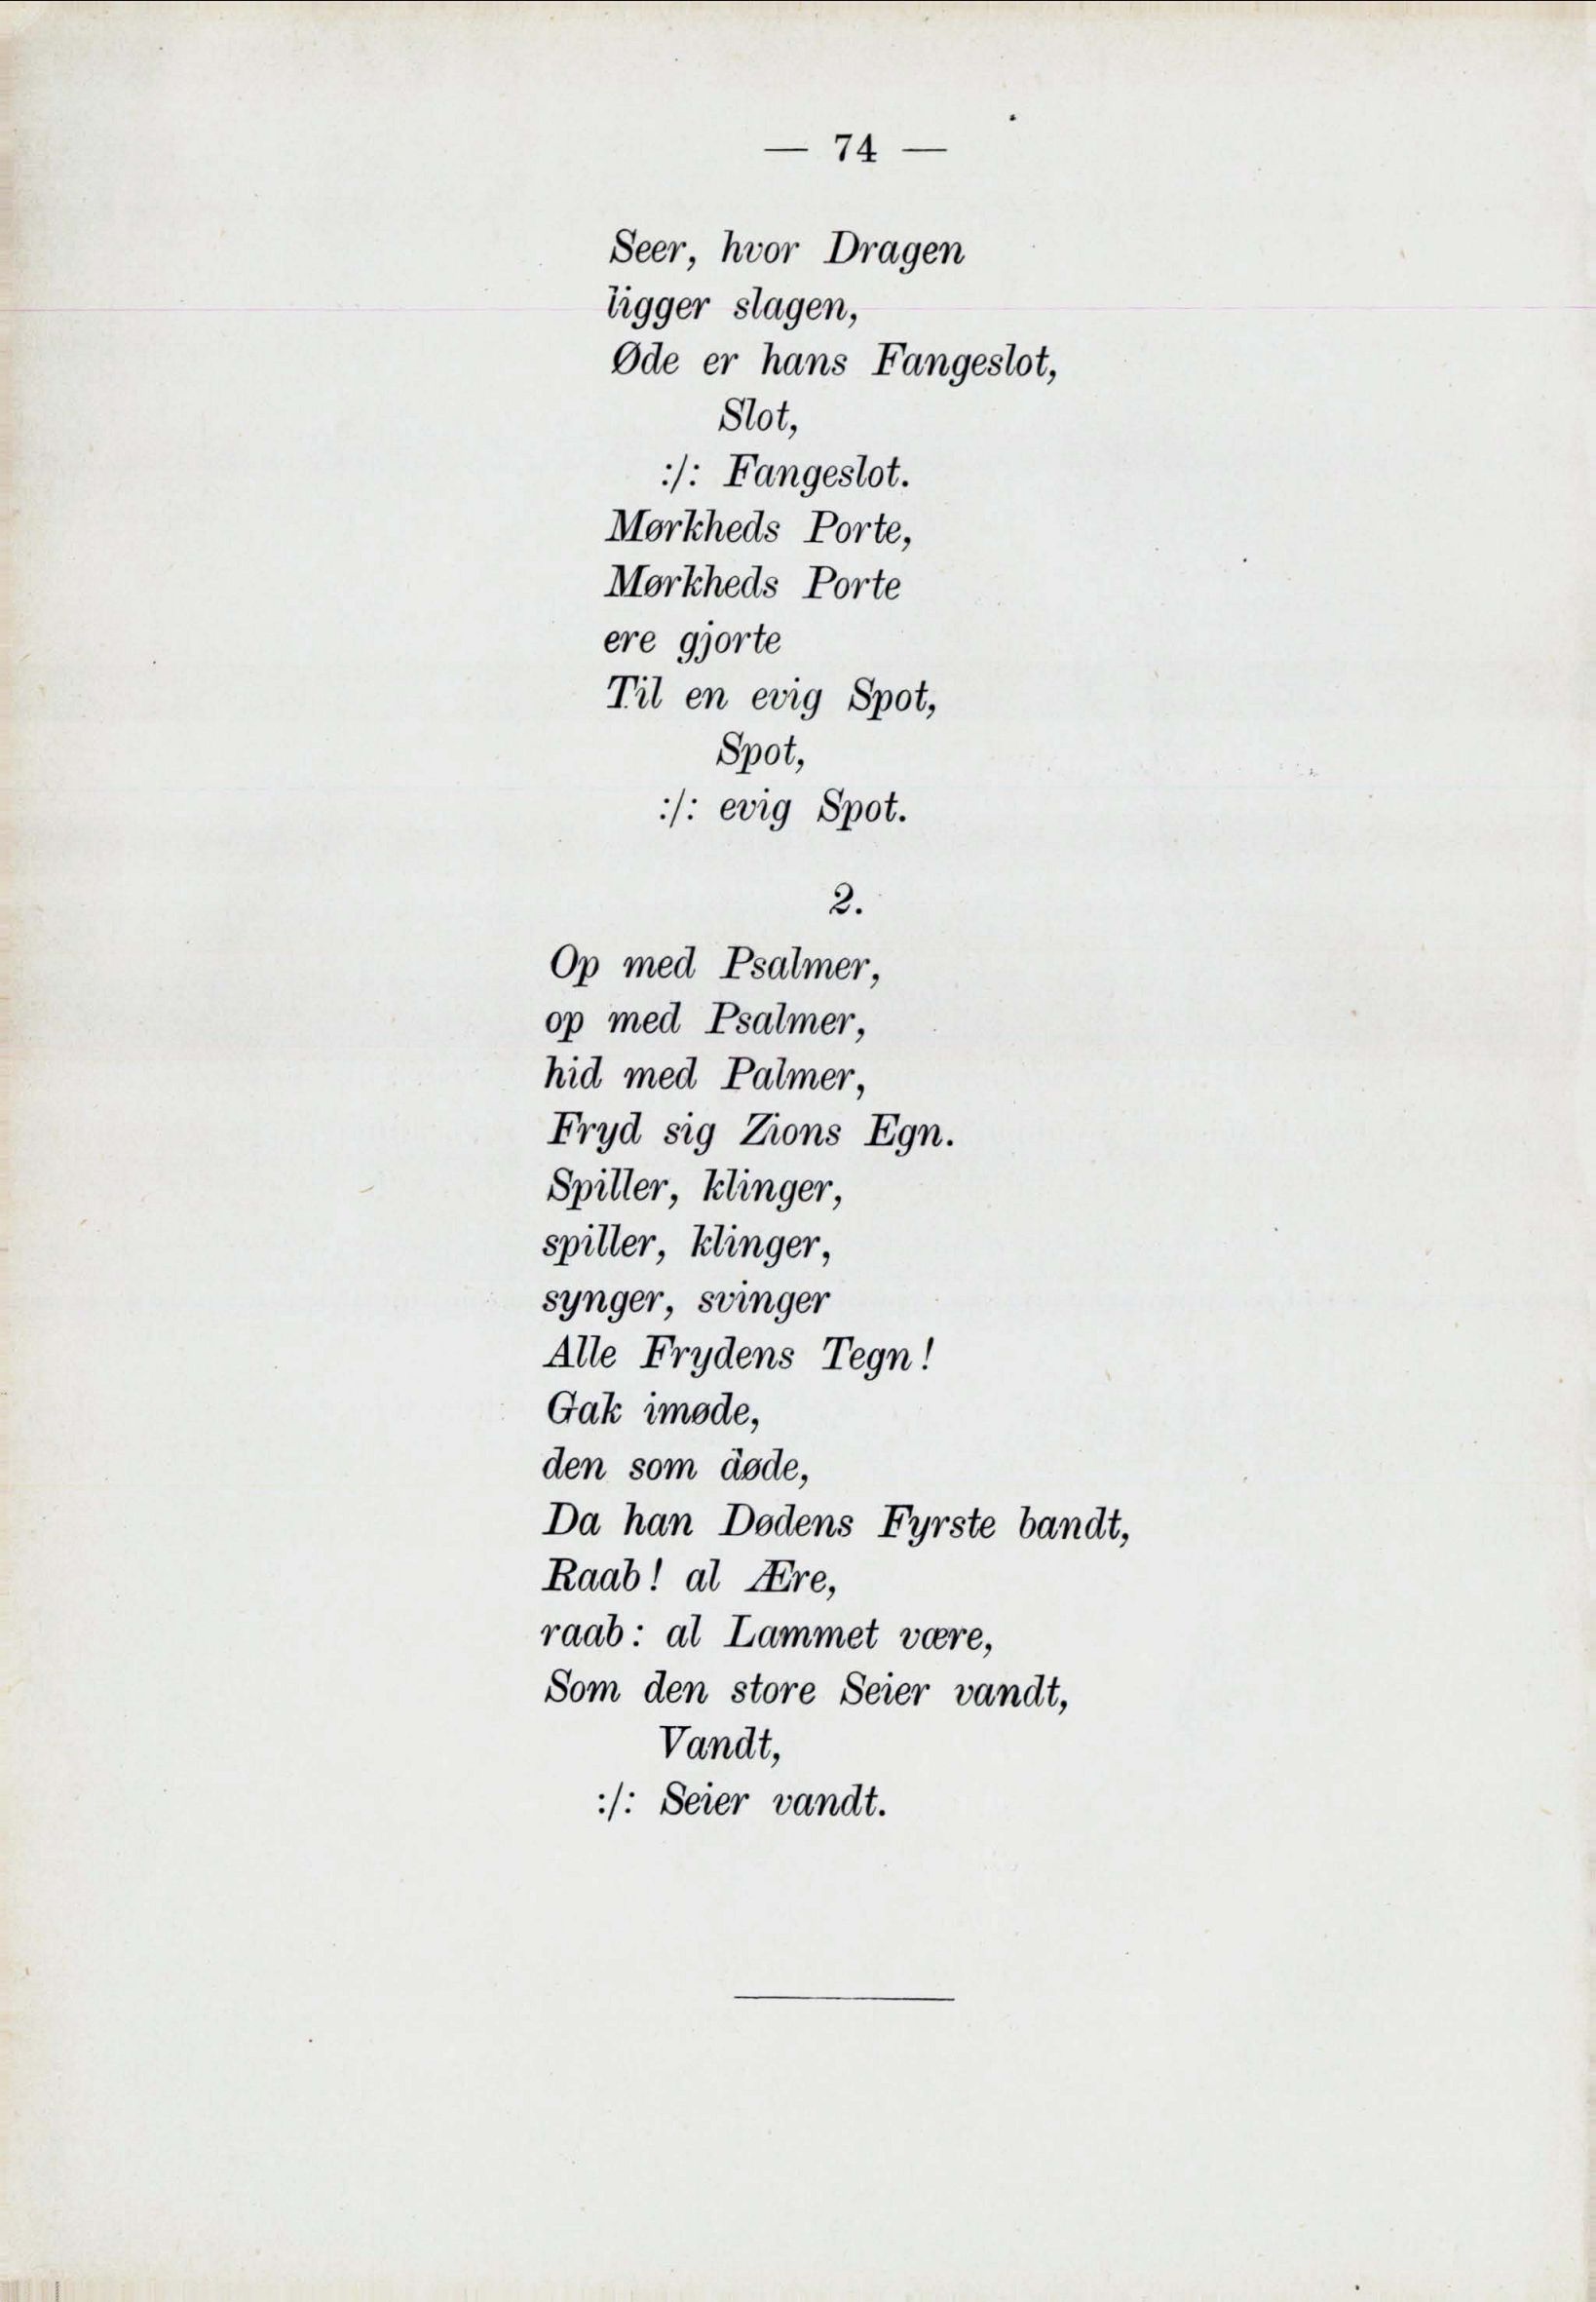 — 74 —
Seer, hvor Dragen
ligger slagen,
Øde er hans Fangeslot,
Slot,
:/: Fangeslot.
Mørkheds Porte,
Mørkheds Porte
ere gjorte
Til en evig Spot,
Spot,
:/: evig Spot.
2.
Op med Psalmer,
op med Psalmer,
hid med Palmer,
Fryd sig Zions Egn.
Spiller, klinger,
spiller, klinger,
synger, svinger
Alle Frydens Tegn!
Gak imøde,
den som døde,
Da han Dødens Fyrste bandt,
Raab! al Ære,
raab: al Lammet være,
Som den store Seier vandt,
Vandt,
:/: Seier vandt.